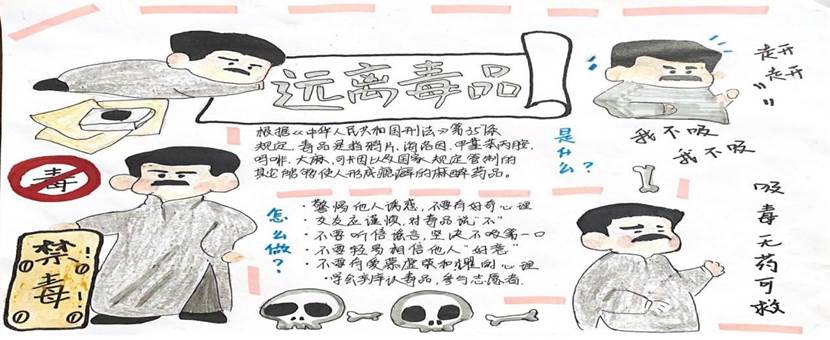 远离毒品
走开
走开
我不吸
我不吸
根据《中华人民共和国刑法》第35条
规定,毒品是指鸦片、海洛因、甲基苯丙胺、
吗啡、大麻、可卡因以及国家规定管制的
其它能够使人形成瘾癖的麻醉药品。
是什么?
毒
禁毒
怎么做?
·警惕他人诱惑,不要有好奇心理
·交友应谨慎,对毒品说“不”
·不要听信谣言,坚决不吸第一口
·不要轻易相信他人“好意”
·不要有爱慕虚荣和的心理
·学会辨认毒品,参与志愿者
吸毒无药可救